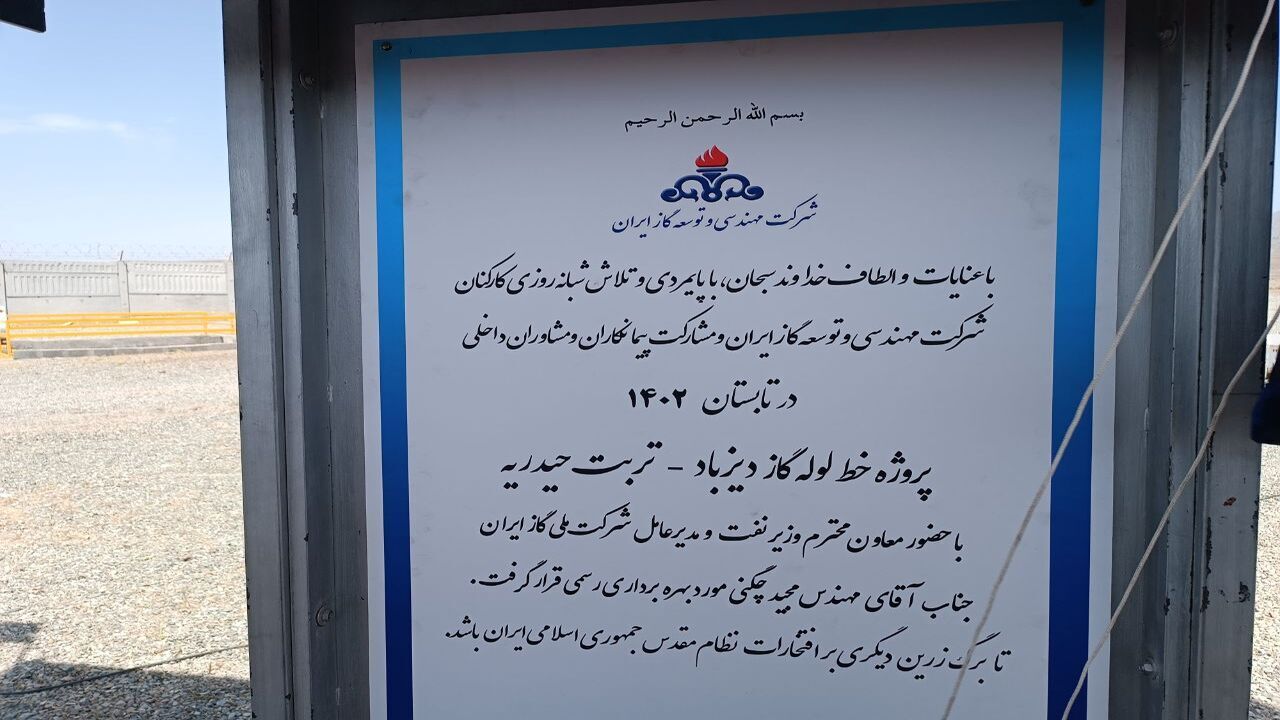 بسم الله الرحمن الرحیم
شرکت مهندسی و توسعه گاز ایران
با عنایات و الطاف خداوند سبحان، با پایمردی و تلاش شبانه روزی کارکنان
شرکت مهندسی و توسعه گاز ایران و مشارکت پیمانکاران و مشاوران داخلی
در تابستان ۱۴۰۲
پروژه خط لوله گاز دیزباد - تربت حیدریه
با حضور معاون محترم وزیر نفت و مدیرعامل شرکت ملی گاز ایران
جناب آقای مهندس مجید چگنی مورد بهره برداری رسمی قرار گرفت.
تا برگ زرین دیگری بر افتخارات نظام مقدس جمهوری اسلامی ایران باشد.